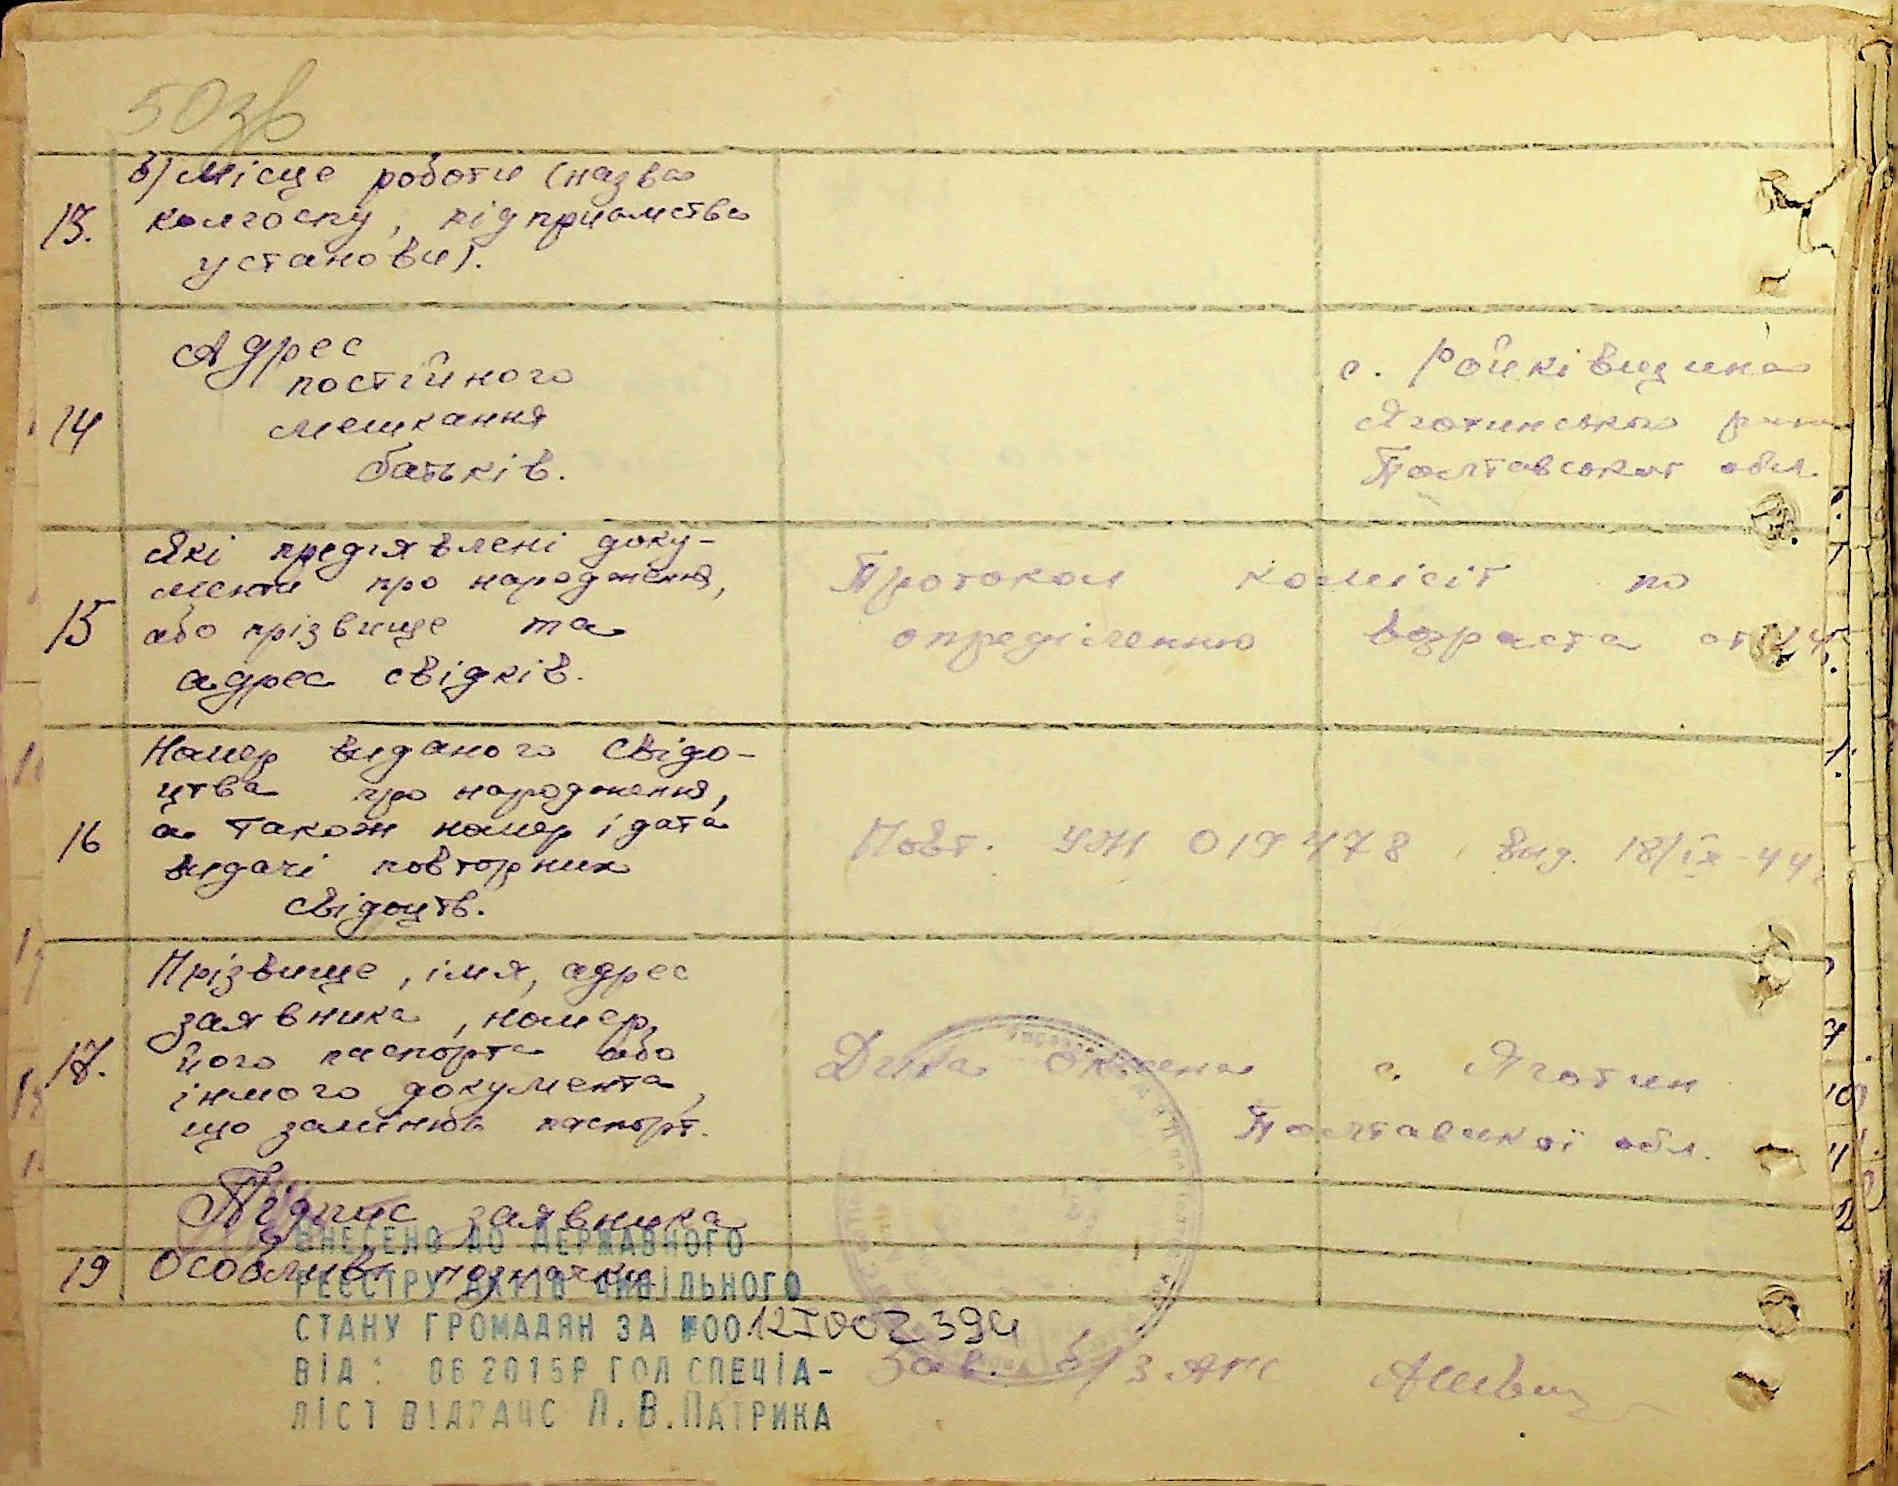 50зв
в) Місце роботи (назва
13. колгоспу, підприємства
установи).
Адрес
постійного
14 мешкання
батьків.
с. Райківщина
Яготинського р-ну
Полтавської обл.
Які предіявлені доку-
менти про народження,
15 або прізвище та
адрес свідків.
Протокол комісії по
опреділенню возраста от
Номер виданого свідо-
цтва про народження,
16 а також номер і дата
видачі повторних
свідоцтв.
Повт. УЖ 019478 вид. 18/ІХ-44
Прізвище, імя, адрес
заявника, номер,
17. його паспорта або
іншого документа,
що замінює паспорт.
Дика Оксена с. Яготин
Полтавської обл.
Підпис заявника
19 Особливі позначки
ВНЕСЕНО ДО ДЕРЖАВНОГО
РЕЄСТРУ АКТІВ ЦИВІЛЬНОГО
СТАНУ ГРОМАДЯН ЗА №00
ВІД: 06 2015Р ГОЛ СПЕЦІА-
ЛІСТ ВІДРАЦС Л.В.ПАТРИКА
Зав. б/ЗАГС